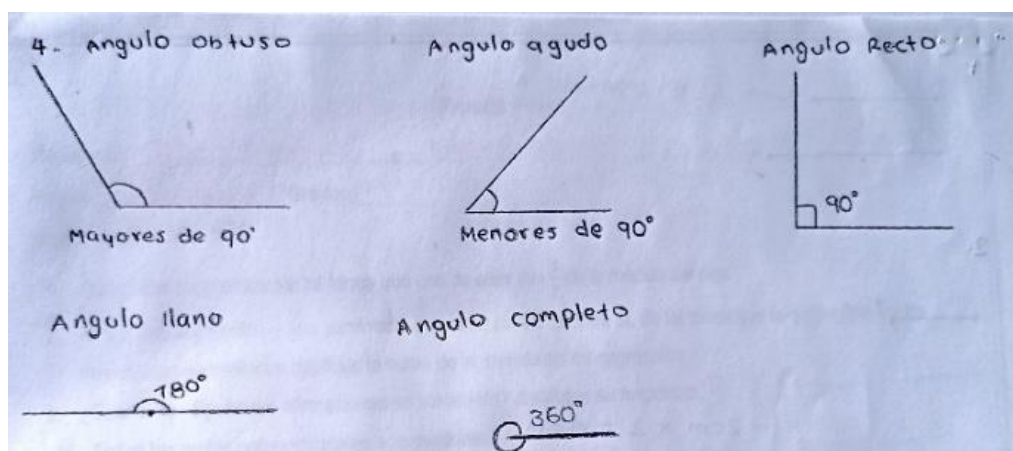 4. Angulo Obtuso
Angulo agudo
Angulo Recto
Mayores de 90°
Menores de 90°
90°
Angulo llano
Angulo completo
180°
360°